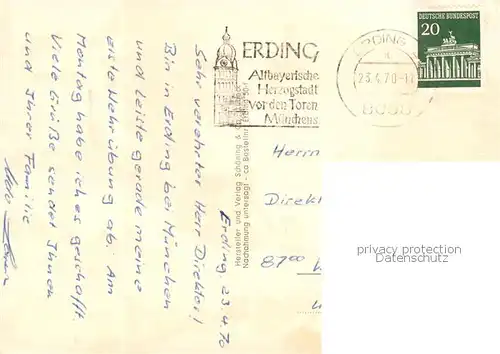 Erding, 23.4.70
Sehr verehrter Herr Direktor!
Bin in Erding bei München
und leiste gerade meine
erste Wehrübung ab. Am
Montag habe ich es geschafft.
Viele Grüße sendet Ihnen
und Ihrer Familie
Hersteller und Verlag Schöning &
Nachahmung untersagt - ca Bestellnr
ERDING
Altbayerische
Herzogstadt
vor den Toren
Münchens
ERDING
23.4.70
8058
DEUTSCHE BUNDESPOST
20
Herrn
Direkt
8700
privacy protection
Datenschutz